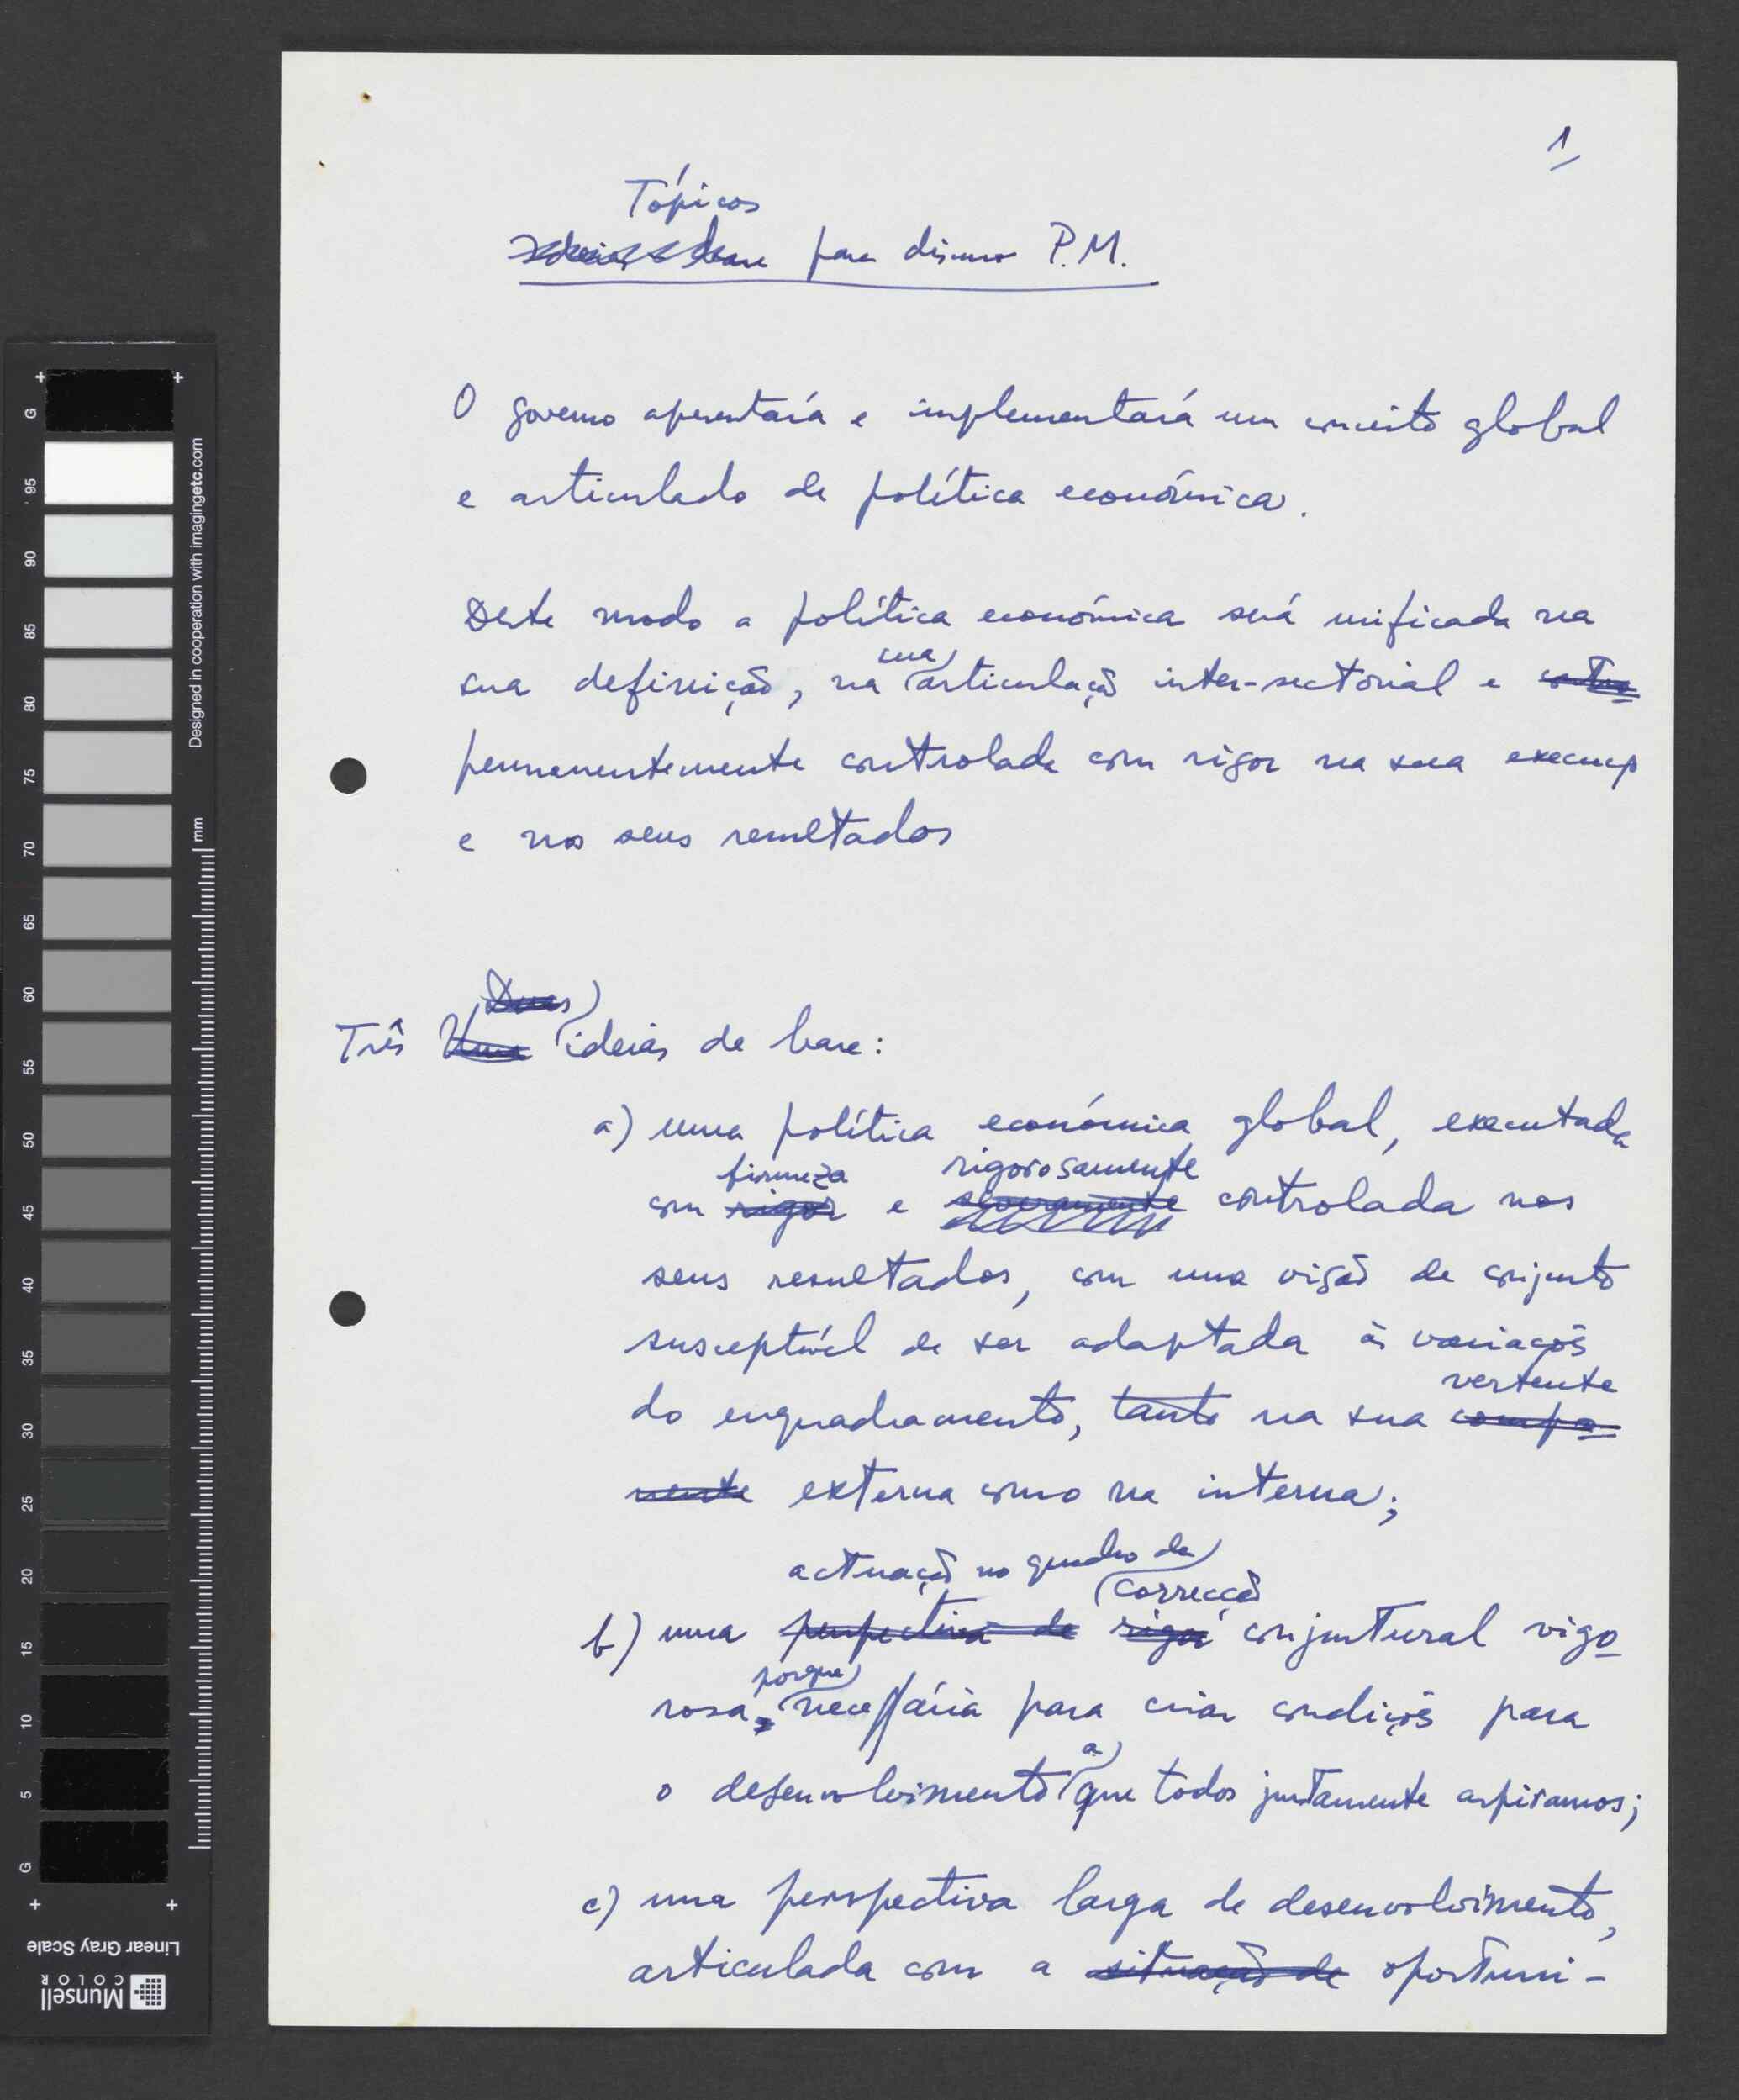 1
Tópicos
Ideias base para discurso P.M.
O governo apresentará e implementará um conceito global
e articulado de política económica.
Deste modo a política económica será unificada na
sua
sua definição, na articulação inter-sectorial e contro
permanentemente controlada com rigor na sua execução
e nos seus resultados
Duas
Três Uma ideias de base:
a) uma política económica global, executada
firmeza rigorosamente
com rigor e severamente controlada nos
seus resultados, com uma visão de conjunto
susceptível de ser adaptada às variações
vertente
do enquadramento, tanto na sua compo-
nente externa como na interna;
actuação no quadro da
correcção
b) uma perspectiva de rigor conjuntural vigo-
porque
rosa, necessária para criar condições para
a
o desenvolvimento que todos justamente aspiramos;
c) uma perspectiva larga de desenvolvimento,
articulada com a situação de oportuni-
Designed in cooperation with imagingetc.com
mm
G 95 90 85 80 75 70 65 60 55 50 45 40 35 30 25 20 15 10 5 G
Linear Gray Scale
Munsell
COLOR